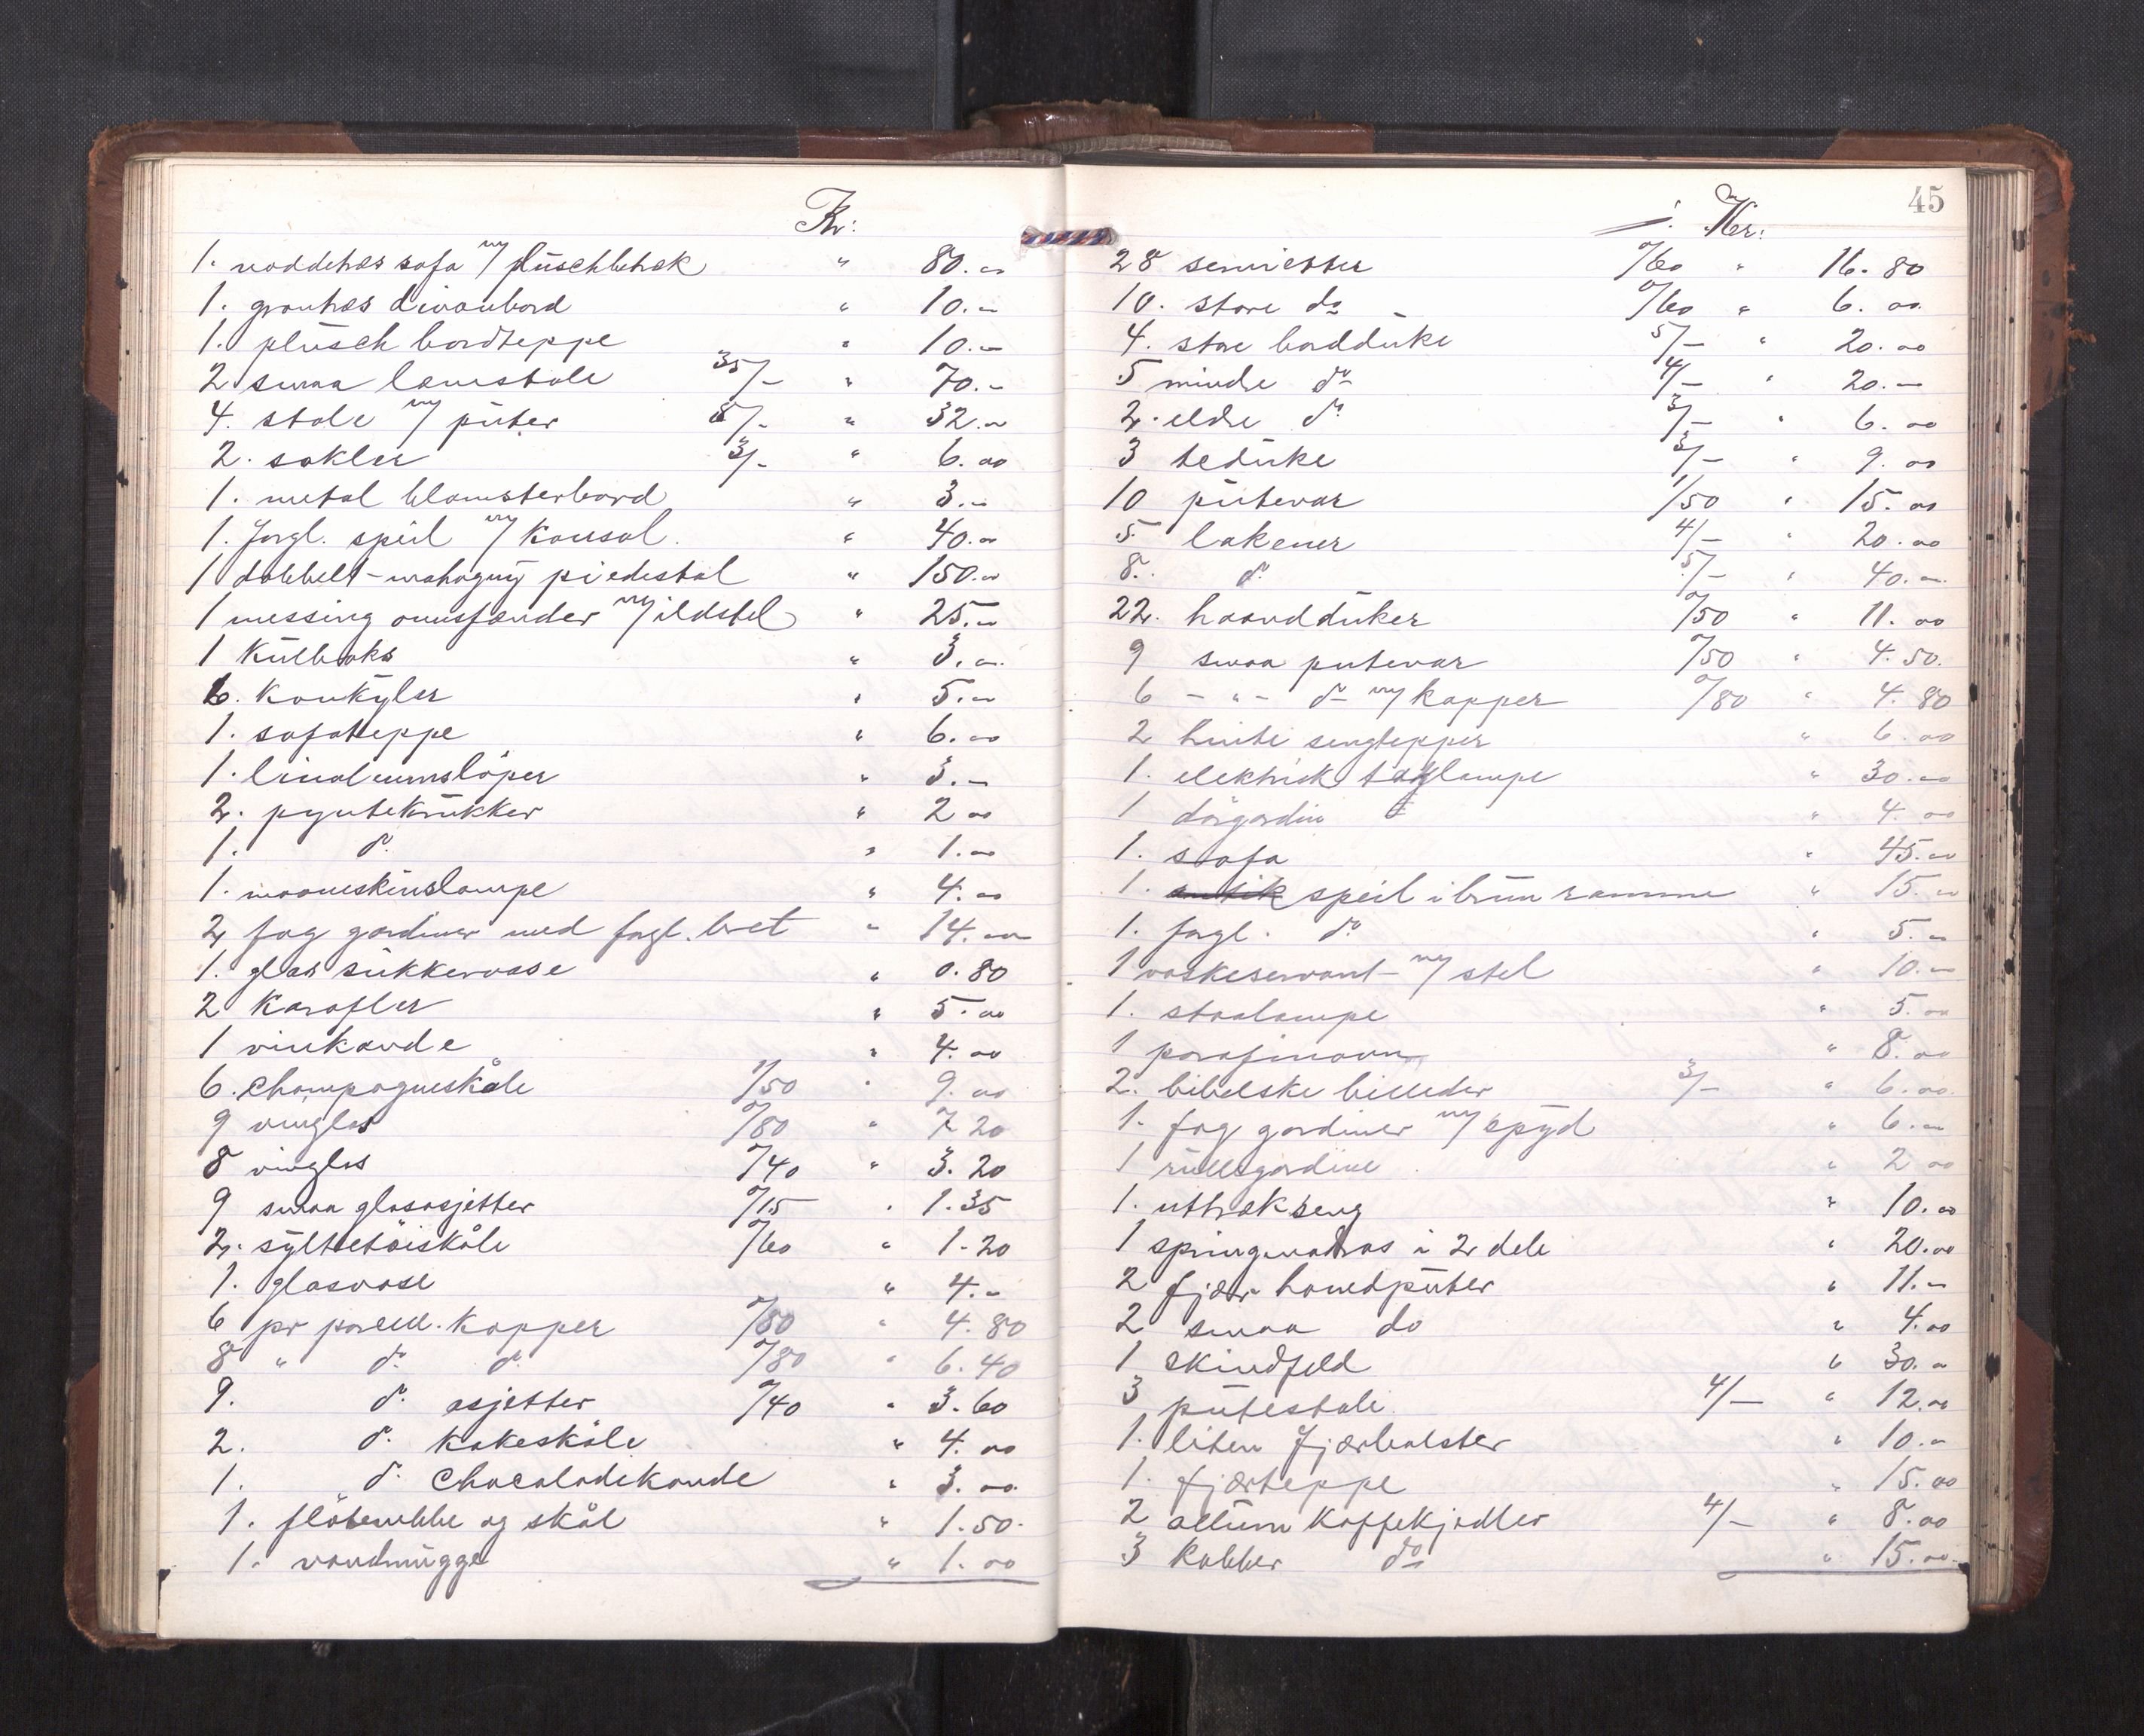 Kr:
1. noddetræs sofa m/ plüschbetræk " 80.00
1. grantræs divanbord " 10.00
1. plüsch bordteppe " 10.00
2 smaa lænestole 35/- " 70.-
4. stole m/ püter 8/- " 32.00
2. sokler 3/- " 6.00
1. metal blomsterbord " 3.00
1. forgl. speil m/ Konsol. " 40.00
1 dobbelt-mahogny piedestal " 150.00
1 messing ovnsfander m/ ildstel " 25.00
1 Külboks " 3.00
6. Konkyler " 5.00
1. sofateppe " 6.00
1. linoleumslöper " 3.00
2. pyntekrükker " 2 00
1. do " 1.00
1. maaneskinslampe " 4.00
2 fag gardiner med forgl. bret " 14.00
1. glas sükkervase " 0.80
2 Karafler " 5.00
1 vinkande " 4.00
6. Champagneskåle 1/50 " 9.00
9 vinglas 0/80 " 7 20
8 vinglas 0/40 " 3.20
9 smaa glasasjetter 0/15 " 1.35
2. syltetöiskåle 0/60 " 1.20
1. glasvase " 4.-
6 pr porcell. Kopper 0/80 " 4.80
8 " do do 0/80 " 6.40
9. do asjetter 0/40 " 3.60
2. do kakeskåle " 4.00
1. do Chocoladekande " 3.00
1. flötemugge og skål " 1.50
1. vandmügge " 1.00
45
Kr:
28 servietter 0/60 " 16.80
10. store do 0/60 " 6.00
4. store bordduke 5/- " 20.00
5 mindre do 4/- " 20.-
2. eldre do 3/- " 6.00
3 tedüke 3/- " 9.00
10 pütevar 1/50 " 15.00
5 lakener 4/- " 20.00
8. do 5/- " 40.00
22. haandduker 0/50 " 11.00
9 smaa putevar 0/50 " 4.50.
6 - " - do m/ kapper 0/80 " 4.80
2 hvite sengtepper " 6.00
1. elektrisk taglampe " 30.00
1 dörgardin " 4.00
1. sofa " 45.00
1. antik speil i brün ramme " 15.00
1. forgl. do " 5.-
1 vaskeservant m/ stel " 10.00
1. staalampe " 5.00
1 parafinovn " 8.00
2. bibelske billeder 3/- " 6.00
1. fag gardiner m/ spyd " 6.00
1 rüllegardine " 2 00
1. uttræksseng " 10.00
1 springmadras i 2 dele " 20.00
2 fjær hovedpüter " 11.-
2 smaa do " 4.00
1 skindfeld " 30.00
3 pütestole 4/- " 12.00
1. liten fjærbolster " 10.00
1. fjærteppe " 15.00
2 allum Kaffekjedler 4/- " 8.00
3 Kobber do " 15.00